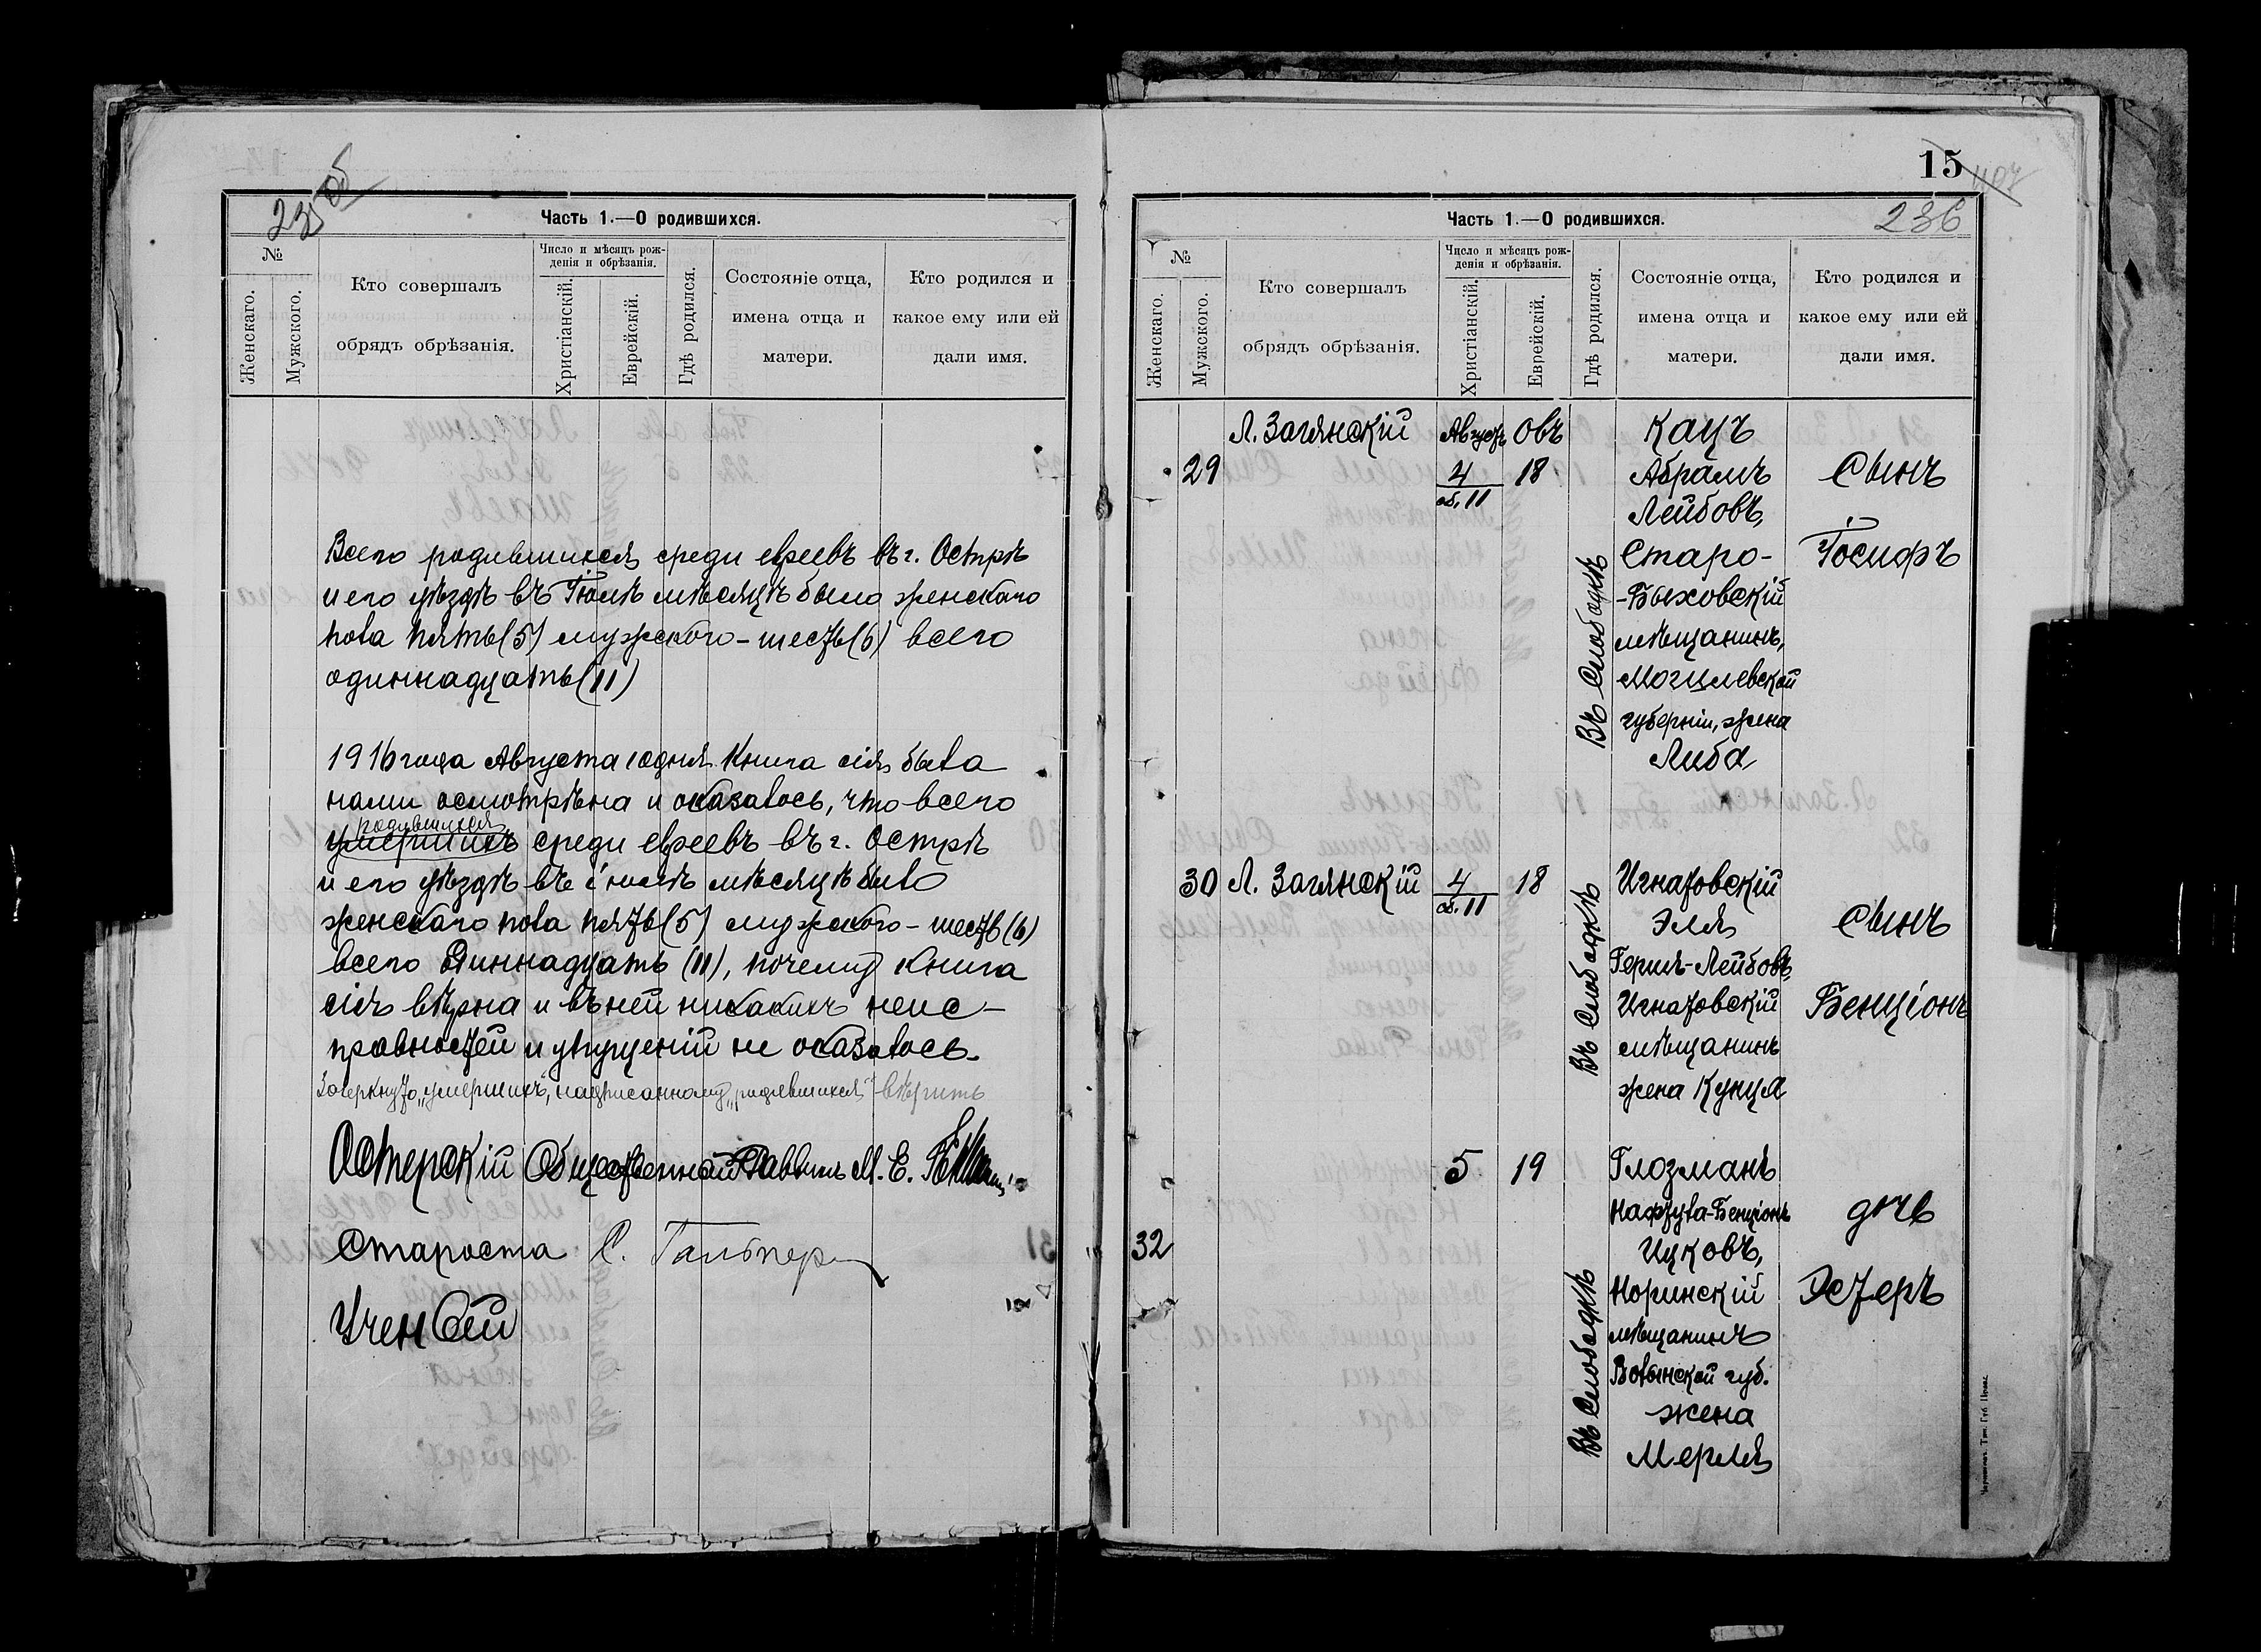 235 об
Часть 1.—О родившихся.
№
Женскаго.
Мужского.
Кто совершалъ
обрядъ обрѣзанія.
Число и мѣсяцъ рож-
денія и обрѣзанія.
Христіанскій.
Еврейскій.
Гдѣ родился.
Состояніе отца,
имена отца и
матери.
Кто родился и
какое ему или ей
дали имя.
Всего родившихся среди евреевъ въ г. Острѣ
и его уѣздѣ въ Іюлѣ мѣсяцѣ было женскаго
пола пять (5) мужского - шесть (6) всего
одиннадцать (11)
1916 года Августа 10 дня Книга сія была
нами осмотрѣна и оказалось, что всего
родившихся
умершихъ среди евреевъ въ г. Острѣ
и его уѣздѣ въ іюлѣ мѣсяцѣ было
женскаго пола пять (5) мужского - шесть (6)
всего одиннадцать (11), почему Книга
сія вѣрна и въ ней никакихъ неис-
правностей и упущеній не оказалось.
Зачеркнуто „умершихъ", надписанному „родившихся" вѣрить
Остерскій Общественный Раввинъ М. Е.
Староста С. Гальпер
Ученый
15
236
Часть 1.—О родившихся.
№
Женскаго.
Мужского.
Кто совершалъ
обрядъ обрѣзанія.
Число и мѣсяцъ рож-
денія и обрѣзанія.
Христіанскій.
Еврейскій.
Гдѣ родился.
Состояніе отца,
имена отца и
матери.
Кто родился и
какое ему или ей
дали имя.
Л. Загянскій Августъ Овъ Кацъ
29 4 18 Абрамъ Сынъ
об. 11 Лейбовъ,
Въ Слободкѣ
Старо- Іосифъ
-Быховскій
мѣщанинъ,
Могилевской
губерніи, жена
Либа
30 Л. Загянскій 4 18 Игнатовскій
об. 11 Эля Сынъ
Въ Слободкѣ
Герша-Лейбовъ,
Игнатовскій Бенціонъ
мѣщанинъ
жена Кунца
5 19 Глозманъ
Нафтула-Бенціонъ дочь
32 Ицковъ,
Въ Слободкѣ
Норинскій Эстеръ
мѣщанинъ
Волынской губ.
жена
Мерля